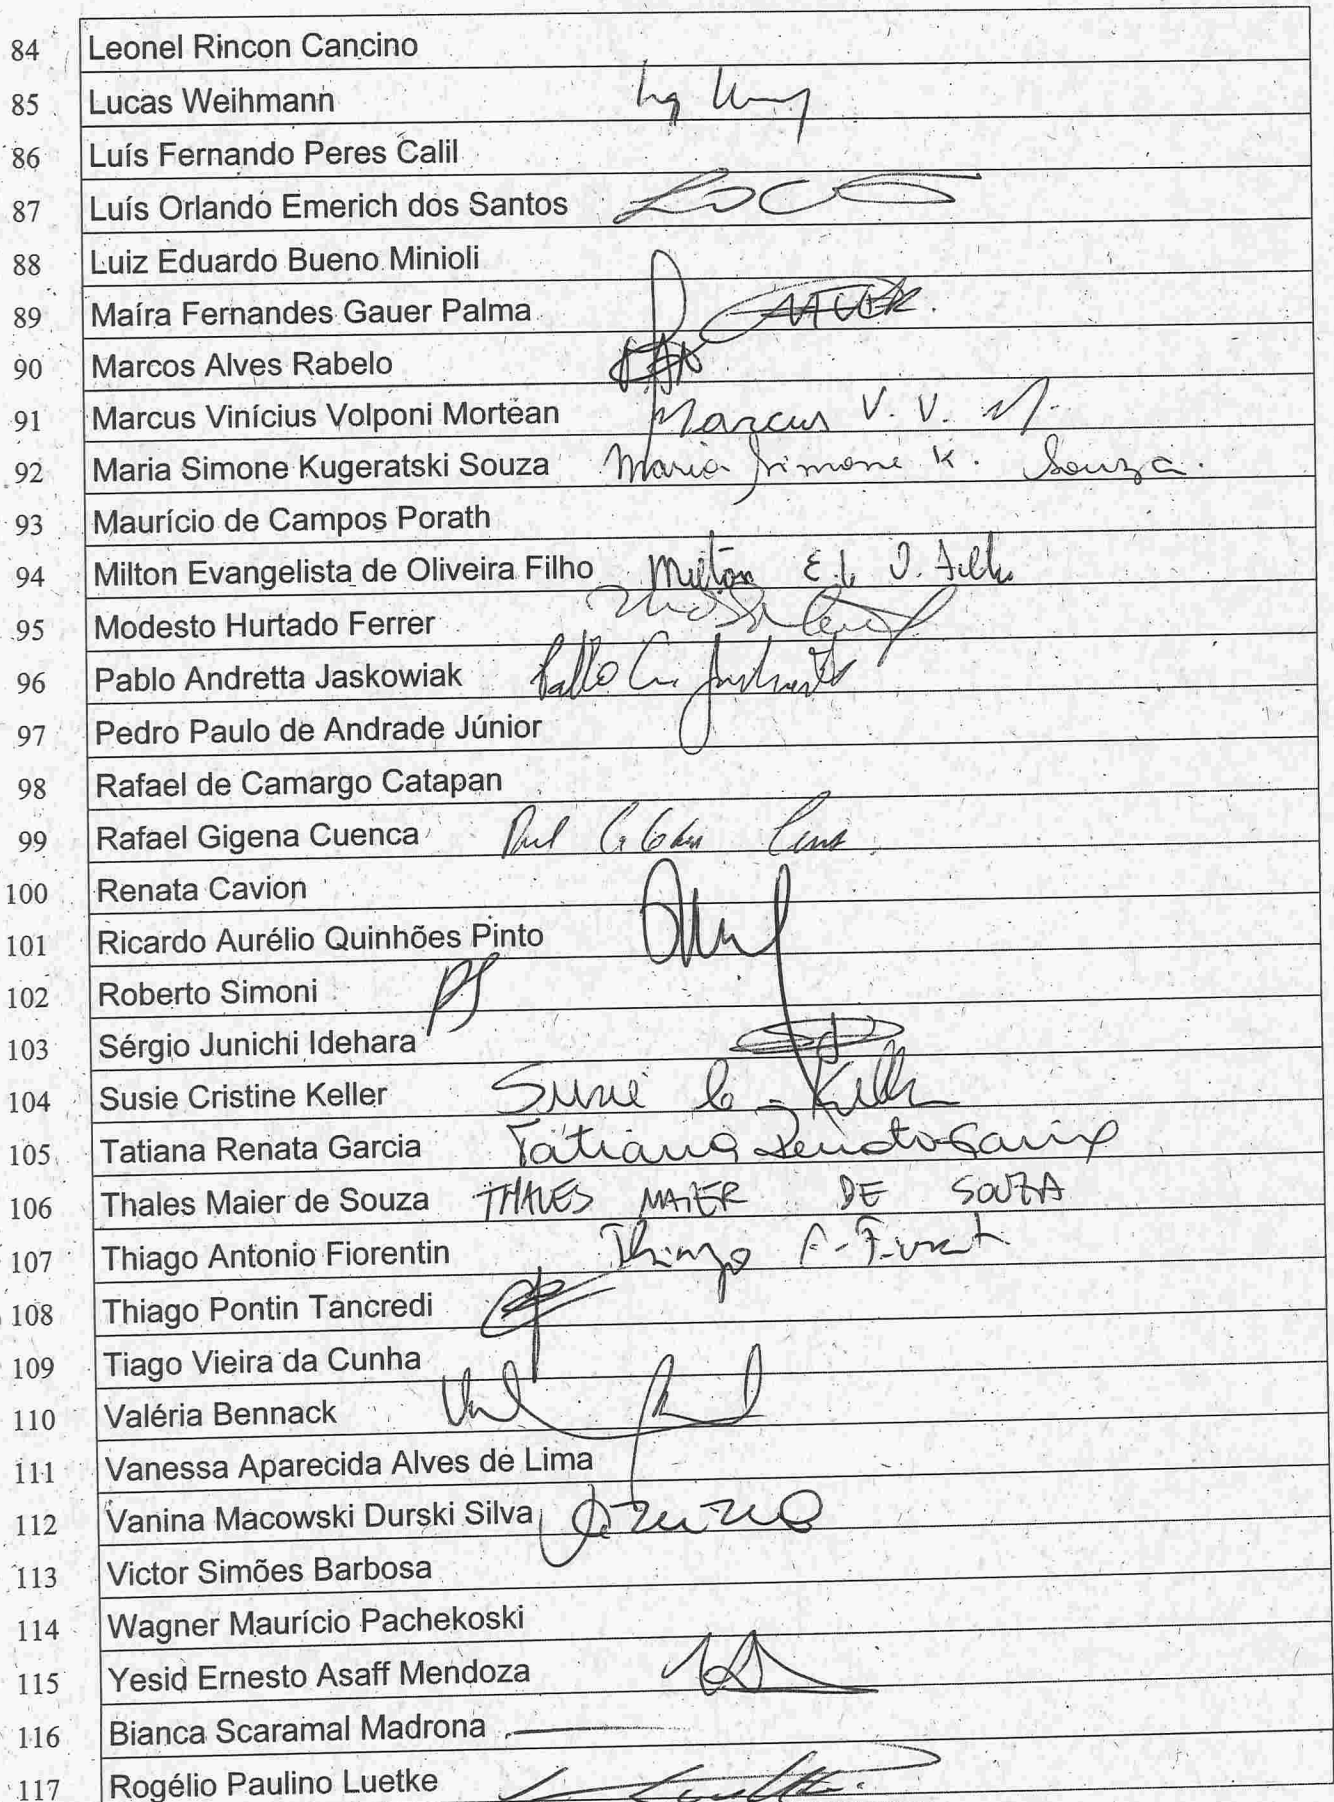 84 Leonel Rincon Cancino
85 Lucas Weihmann
86 Luís Fernando Peres Calil
87 Luís Orlando Emerich dos Santos
88 Luiz Eduardo Bueno Minioli
89 Maíra Fernandes Gauer Palma
90 Marcos Alves Rabelo
91 Marcus Vinícius Volponi Mortean Marcus V. V. M.
92 Maria Simone Kugeratski Souza Maria Simone K. Souza.
93 Maurício de Campos Porath
94 Milton Evangelista de Oliveira Filho Milton E. de O. Filho
95 Modesto Hurtado Ferrer
96 Pablo Andretta Jaskowiak Pablo
97 Pedro Paulo de Andrade Júnior
98 Rafael de Camargo Catapan
99 Rafael Gigena Cuenca
100 Renata Cavion
101 Ricardo Aurélio Quinhões Pinto
102 Roberto Simoni
103 Sérgio Junichi Idehara
104 Susie Cristine Keller Susie C. Keller
105 Tatiana Renata Garcia Tatiana Renata Garcia
106 Thales Maier de Souza THALES MAIER DE SOUZA
107 Thiago Antonio Fiorentin Thiago
108 Thiago Pontin Tancredi
109 Tiago Vieira da Cunha
110 Valéria Bennack
111 Vanessa Aparecida Alves de Lima
112 Vanina Macowski Durski Silva
113 Victor Simões Barbosa
114 Wagner Maurício Pachekoski
115 Yesid Ernesto Asaff Mendoza
116 Bianca Scaramal Madrona
117 Rogélio Paulino Luetke